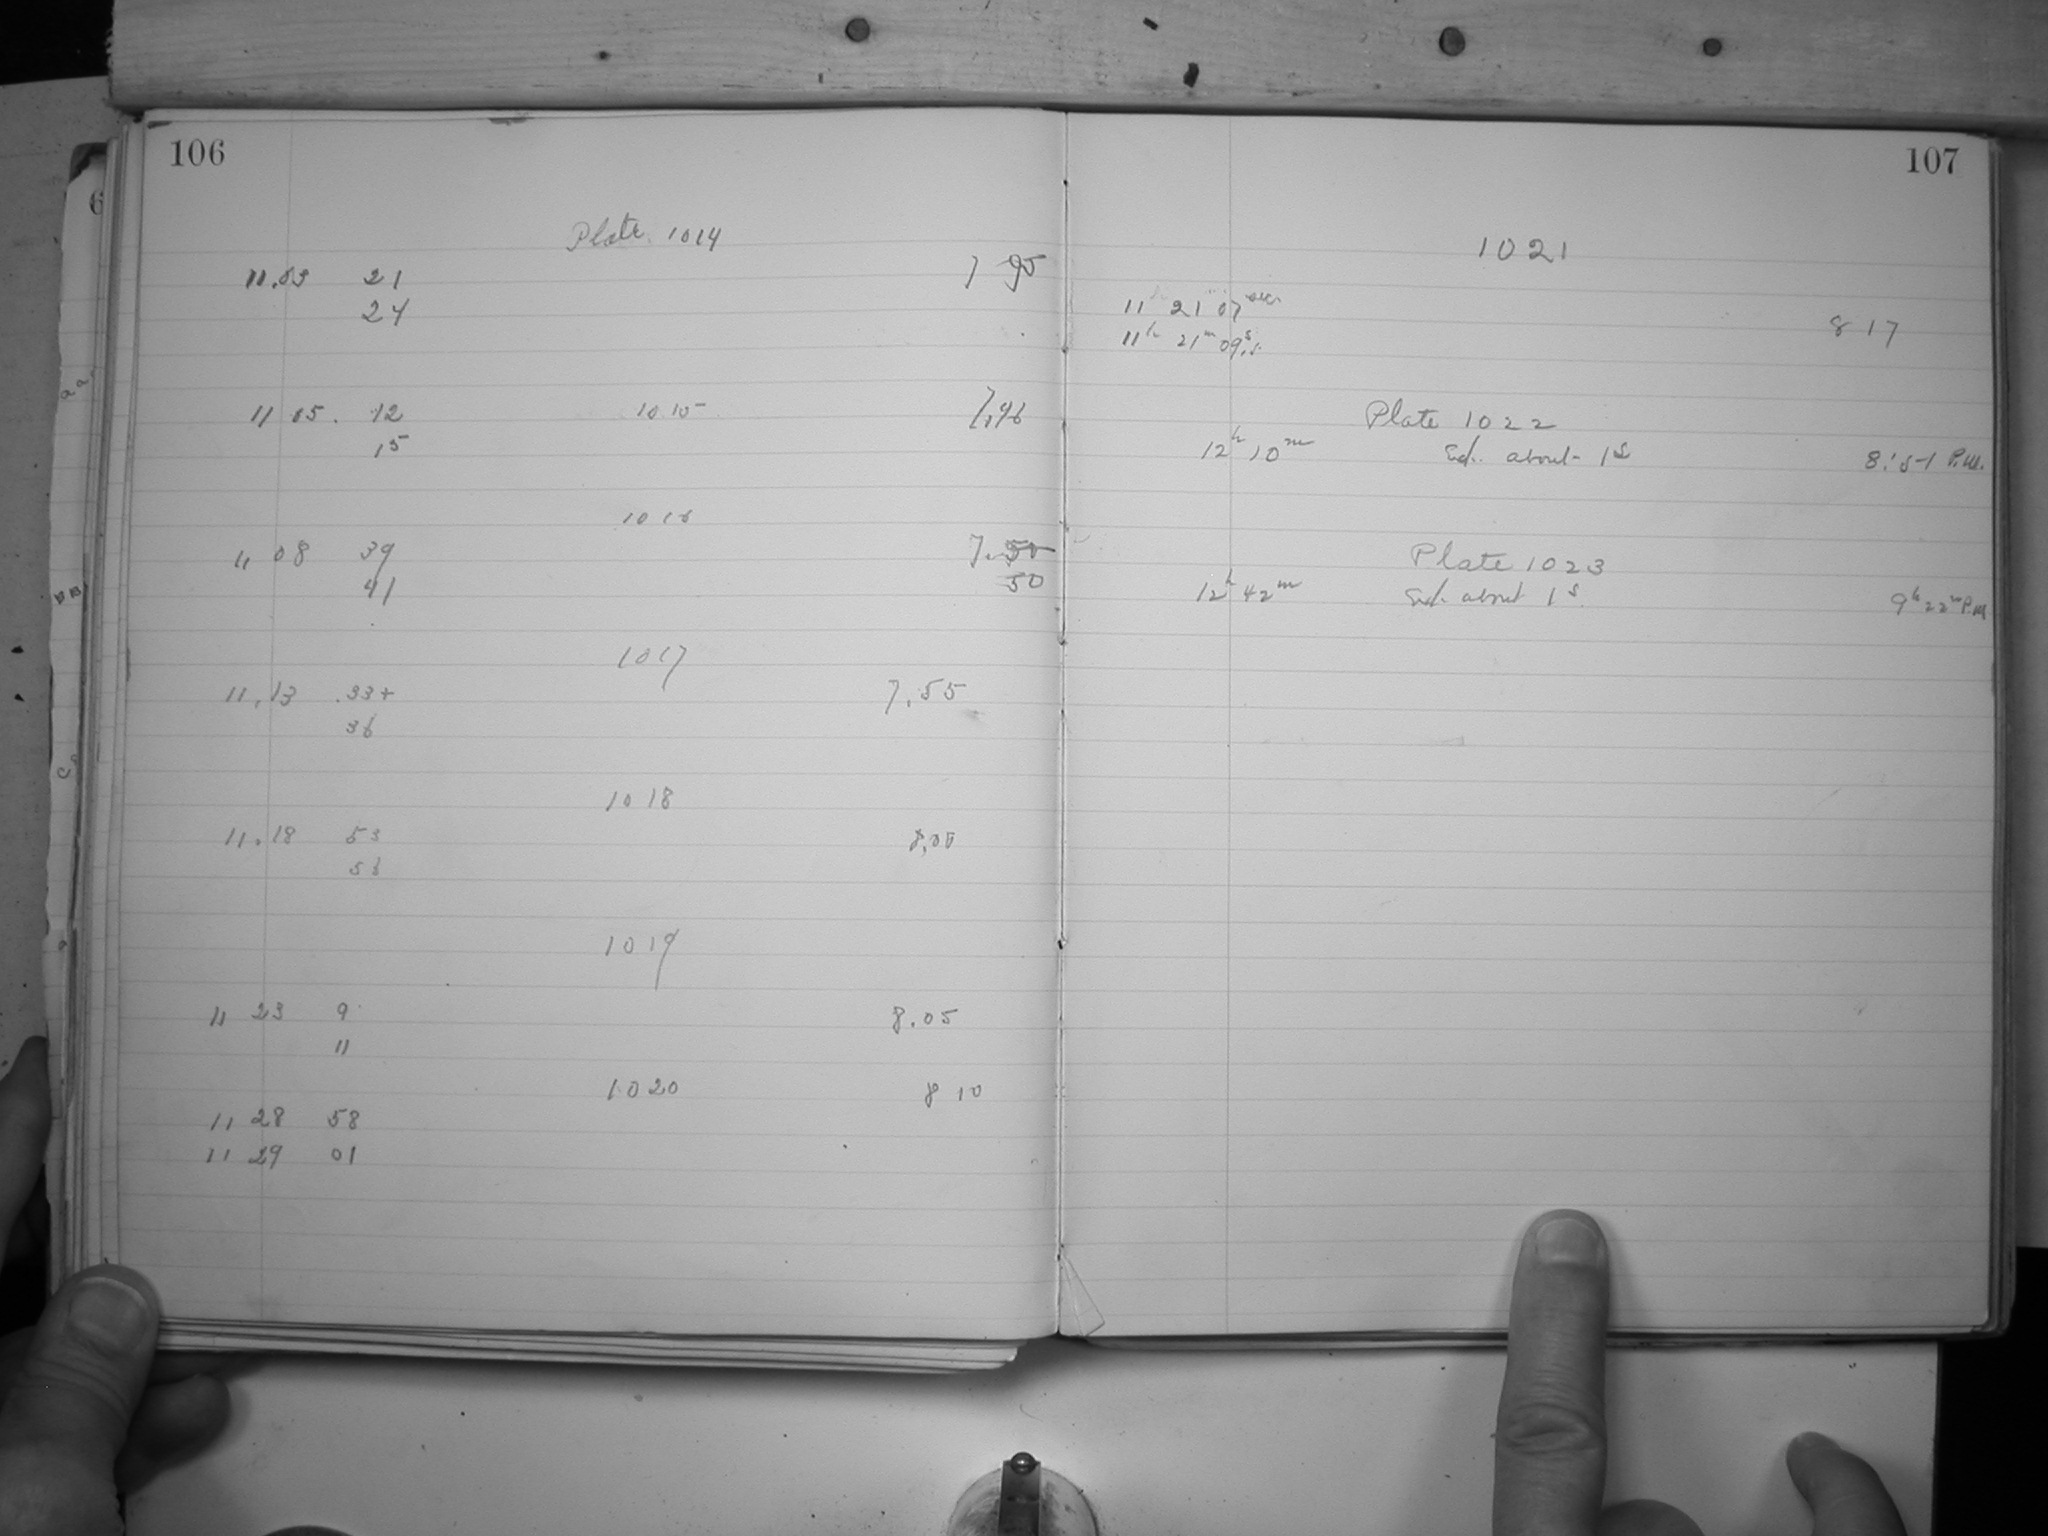 106
Plate 1014
11.03 21
24
11 05. 12 1015 7,46
15
1016
11 08 39 7.50
41 50
1017
11.13 .33+ 7.55
36
1018
11.18 53 8,00
56
1019
11 23 9 8.05
11
1020 8 10
11 28 58
11 29 01
107
1021
11 21 07 sec
11h 21m 09s.5 8 17
Plate 1022
12h 10m about 1s 8:51 P.M.
Plate 1023
12h 42m about 1s. 9h 22m P.M